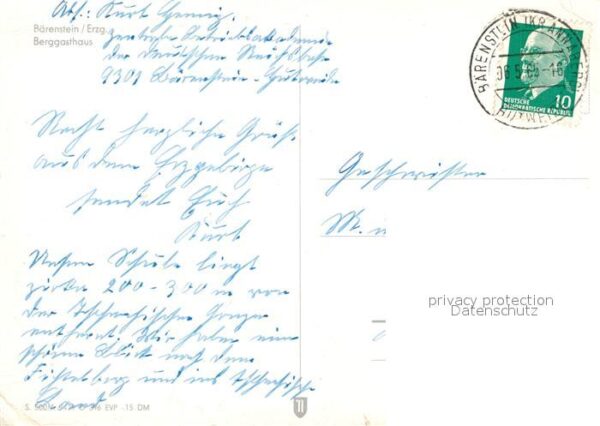 Bärenstein / Erzg.
Berggasthaus
Abs.: Kurt
Zentrale Betriebsakademie
der Deutschen Reichsbahn
9301 Bärenstein-Hutweide
Recht herzliche Grüße
aus dem Erzgebirge
sendet Euch
Kurt
Unsere Schule liegt
zirka 200-300 m von
der Tschechischen Grenze
entfernt. Wir haben eine
schöne Blick nach dem
Fichtelberg und ins tschechische
Land
EVP -.15 DM
BÄRENSTEIN (KR ANNABERG)
10
DEUTSCHE
DEMOKRATISCHE REPUBLIK
Geschwister
M.
privacy protection
Datenschutz